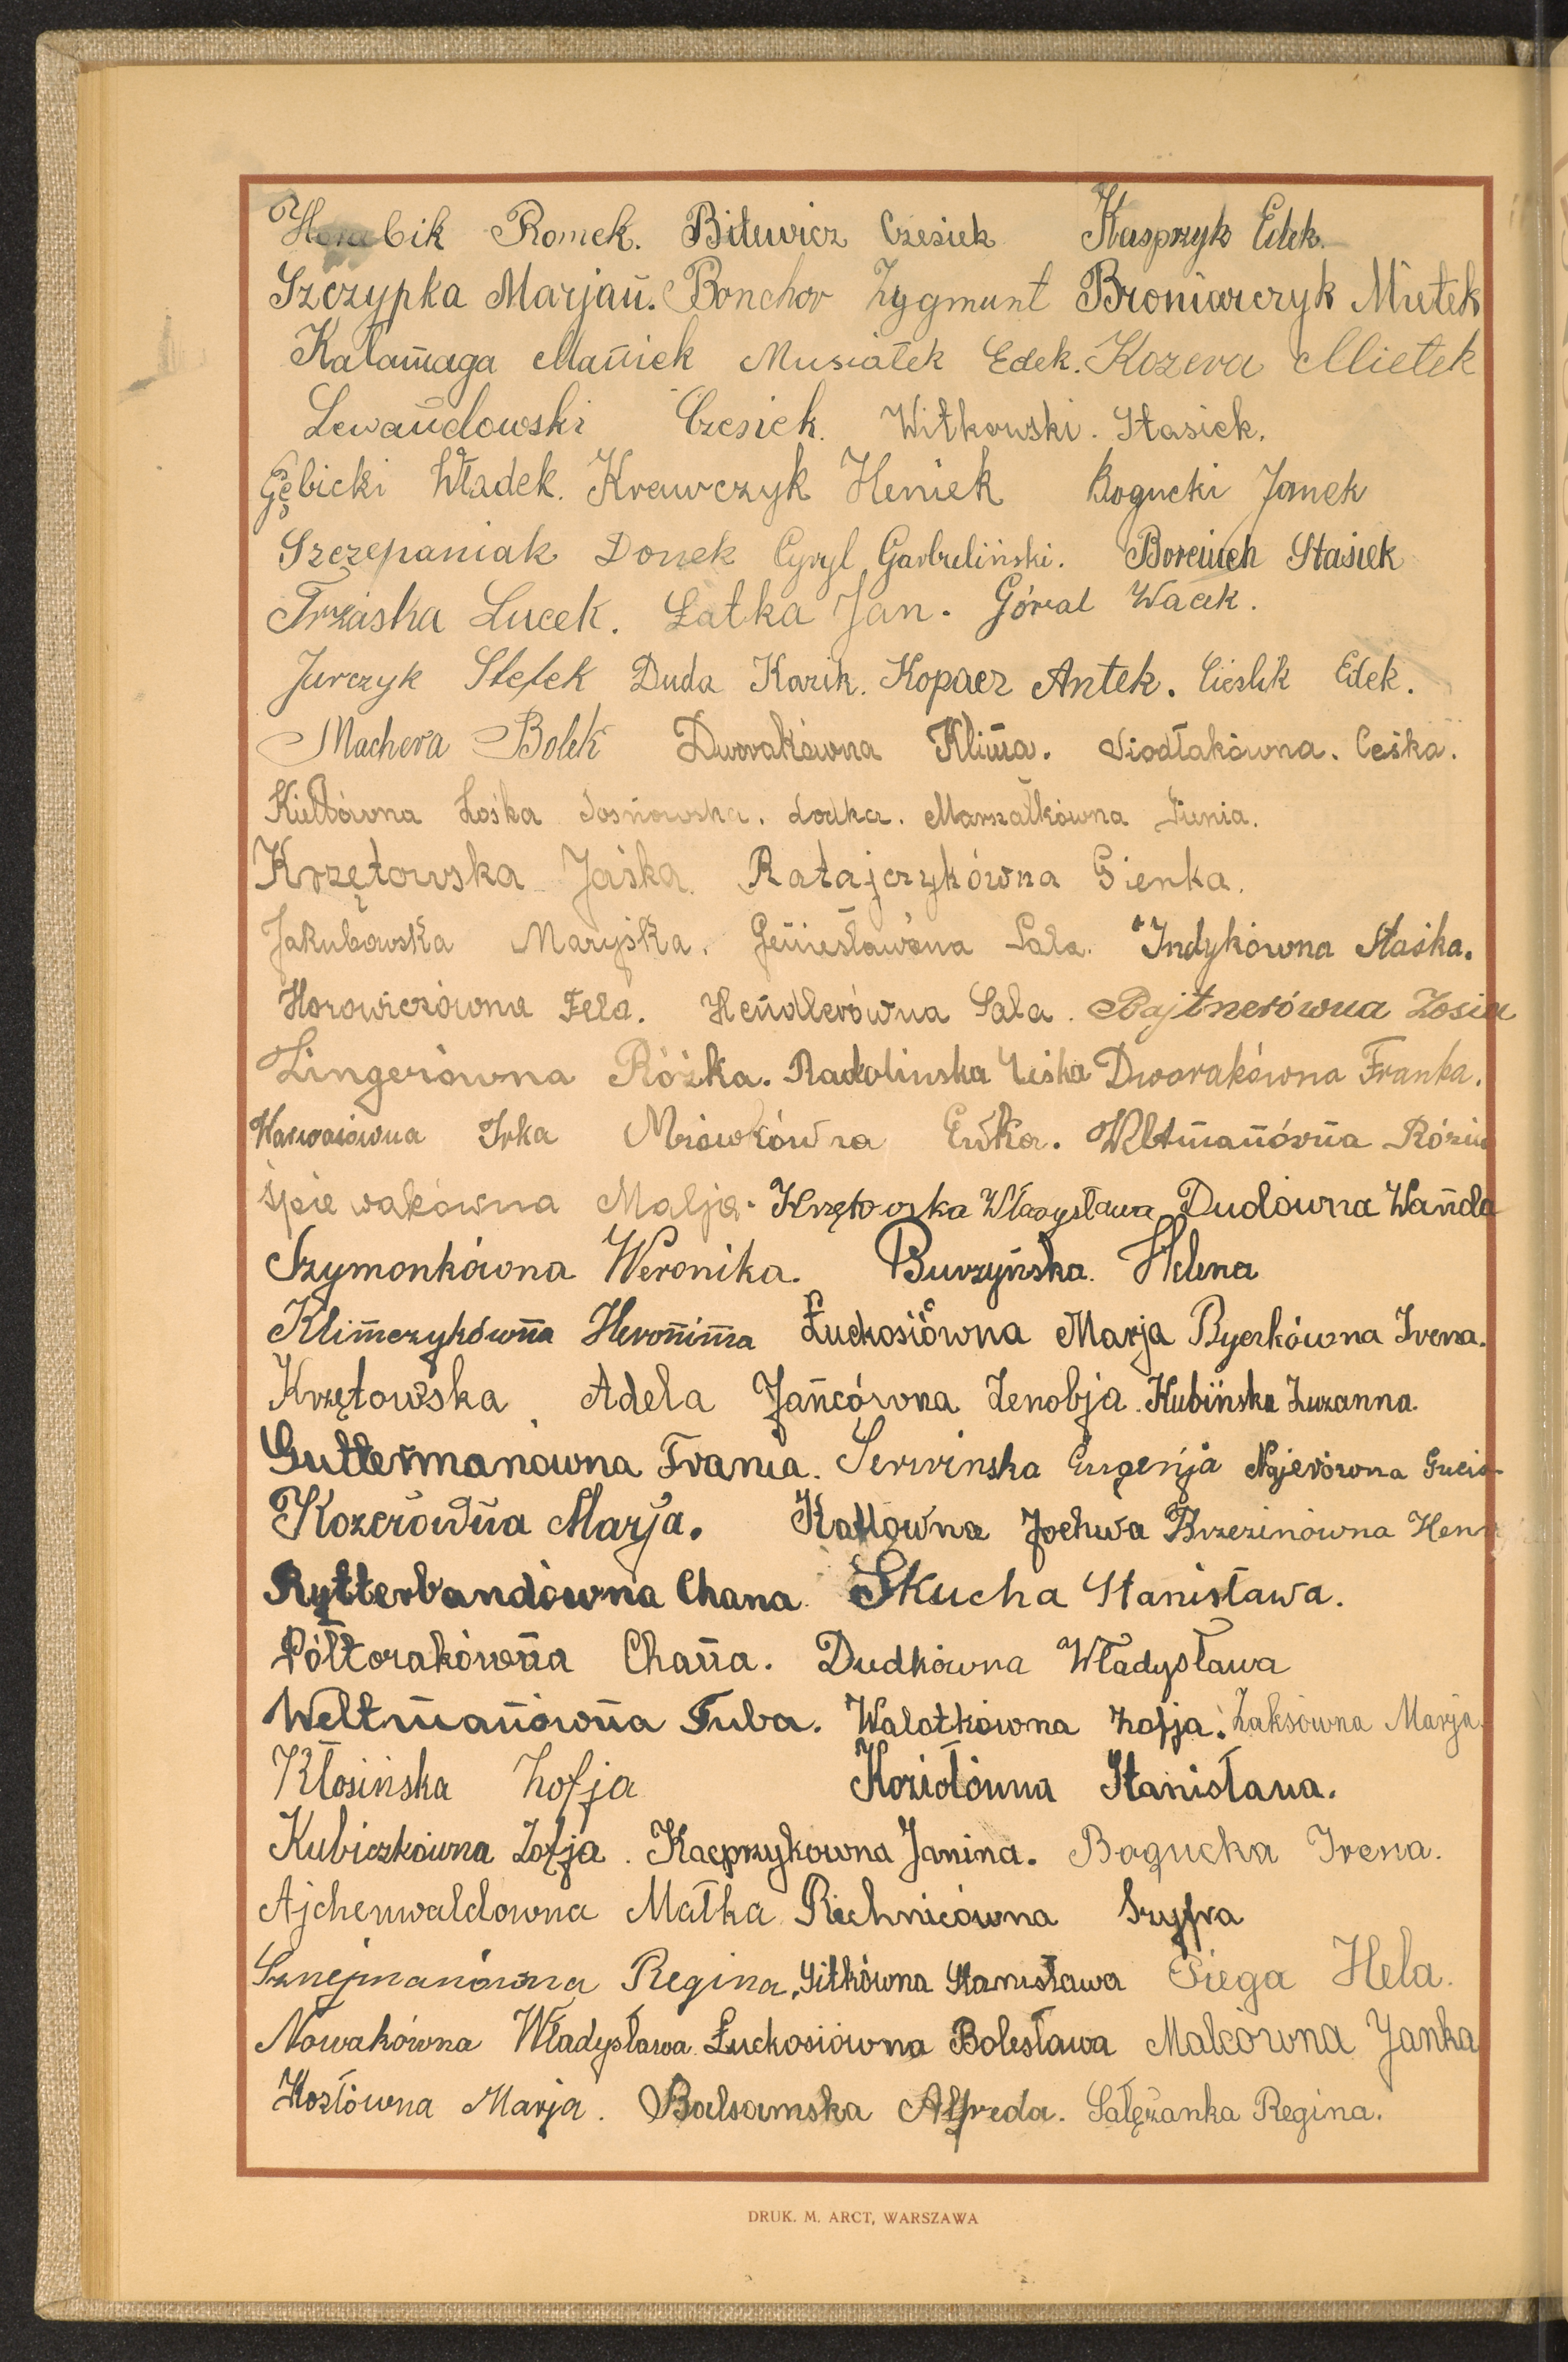 Horabik Romek. Bitewicz Czesiek Kasprzyk Edek.
Szczypka Marjan. Bonchor Zygmunt Broniarczyk Mietek
Kałamaga Maniek Musiałek Edek. Kozera Mietek
Lewandowski Czesiek. Witkowski. Stasiek.
Gębicki Władek. Krawczyk Heniek Bogucki Janek
Szczepaniak Donek Cyryl Garbuliński. Borciuch Stasiek
Trzaska Lucek. Łatka Jan. Góral Wacek.
Jurczyk Stefek Duda Kazik. Kopacz Antek. Cieślik Edek.
Machera Bolek Dworakówna Klima. Siodłakówna. Cеśka.
Kiełbówna Zośka Sosnowska. Lodka. Marszałkówna Gienia.
Krzętowska Jaśka. Ratajczykówna Gienka.
Jakubowska Maryśka. Sala. Indykówna Staśka.
Horowiczówna Fela. Hendlerówna Sala. Bajtnerówna Zosia
Zingerówna Róźka. Radolinska Dworakówna Franka.
Wąwosiówna Irka Mrówkówna Ewka. Weltmanówna Rózia
Śpiewakówna Malja. Krzętowska Władysława Dudówna Wanda
Szymonkówna Weronika. Burzyńska. Helena
Klimczykówna Heronima Łuckosiówna Marja Bycrkówna Irena.
Krzętowska Adela Jańcówna Zenobja. Kubińska Zuzanna.
Guttermanówna Frania. Serwinska Eugenja Najerówna Gucia
Kozerówna Marja. Kattówna Jochwa Brzezinówna Hen
Rytterbandówna Chana. Skucha Stanisława.
Półtorakówna Chana. Dudkówna Władysława
Weltmanówna Tuba. Walotkówna Zofja. Żaksówna Marja.
Kłosińska Zofja Koziołówna Stanisława.
Kubiczkówna Zofja. Kacprzykowna Janina. Bogucka Irena.
Ajchenwaldowna Matka Richnicówna Szyfra
Sznejmanówna Regina, Gitkówna Stanisława Piega Hela.
Nowakówna Władysława. Łuckosiówna Bolesława Malcówna Janka
Kozłówna Marja. Balsamska Alfreda. Sałężanka Regina.
DRUK. M. ARCT, WARSZAWA